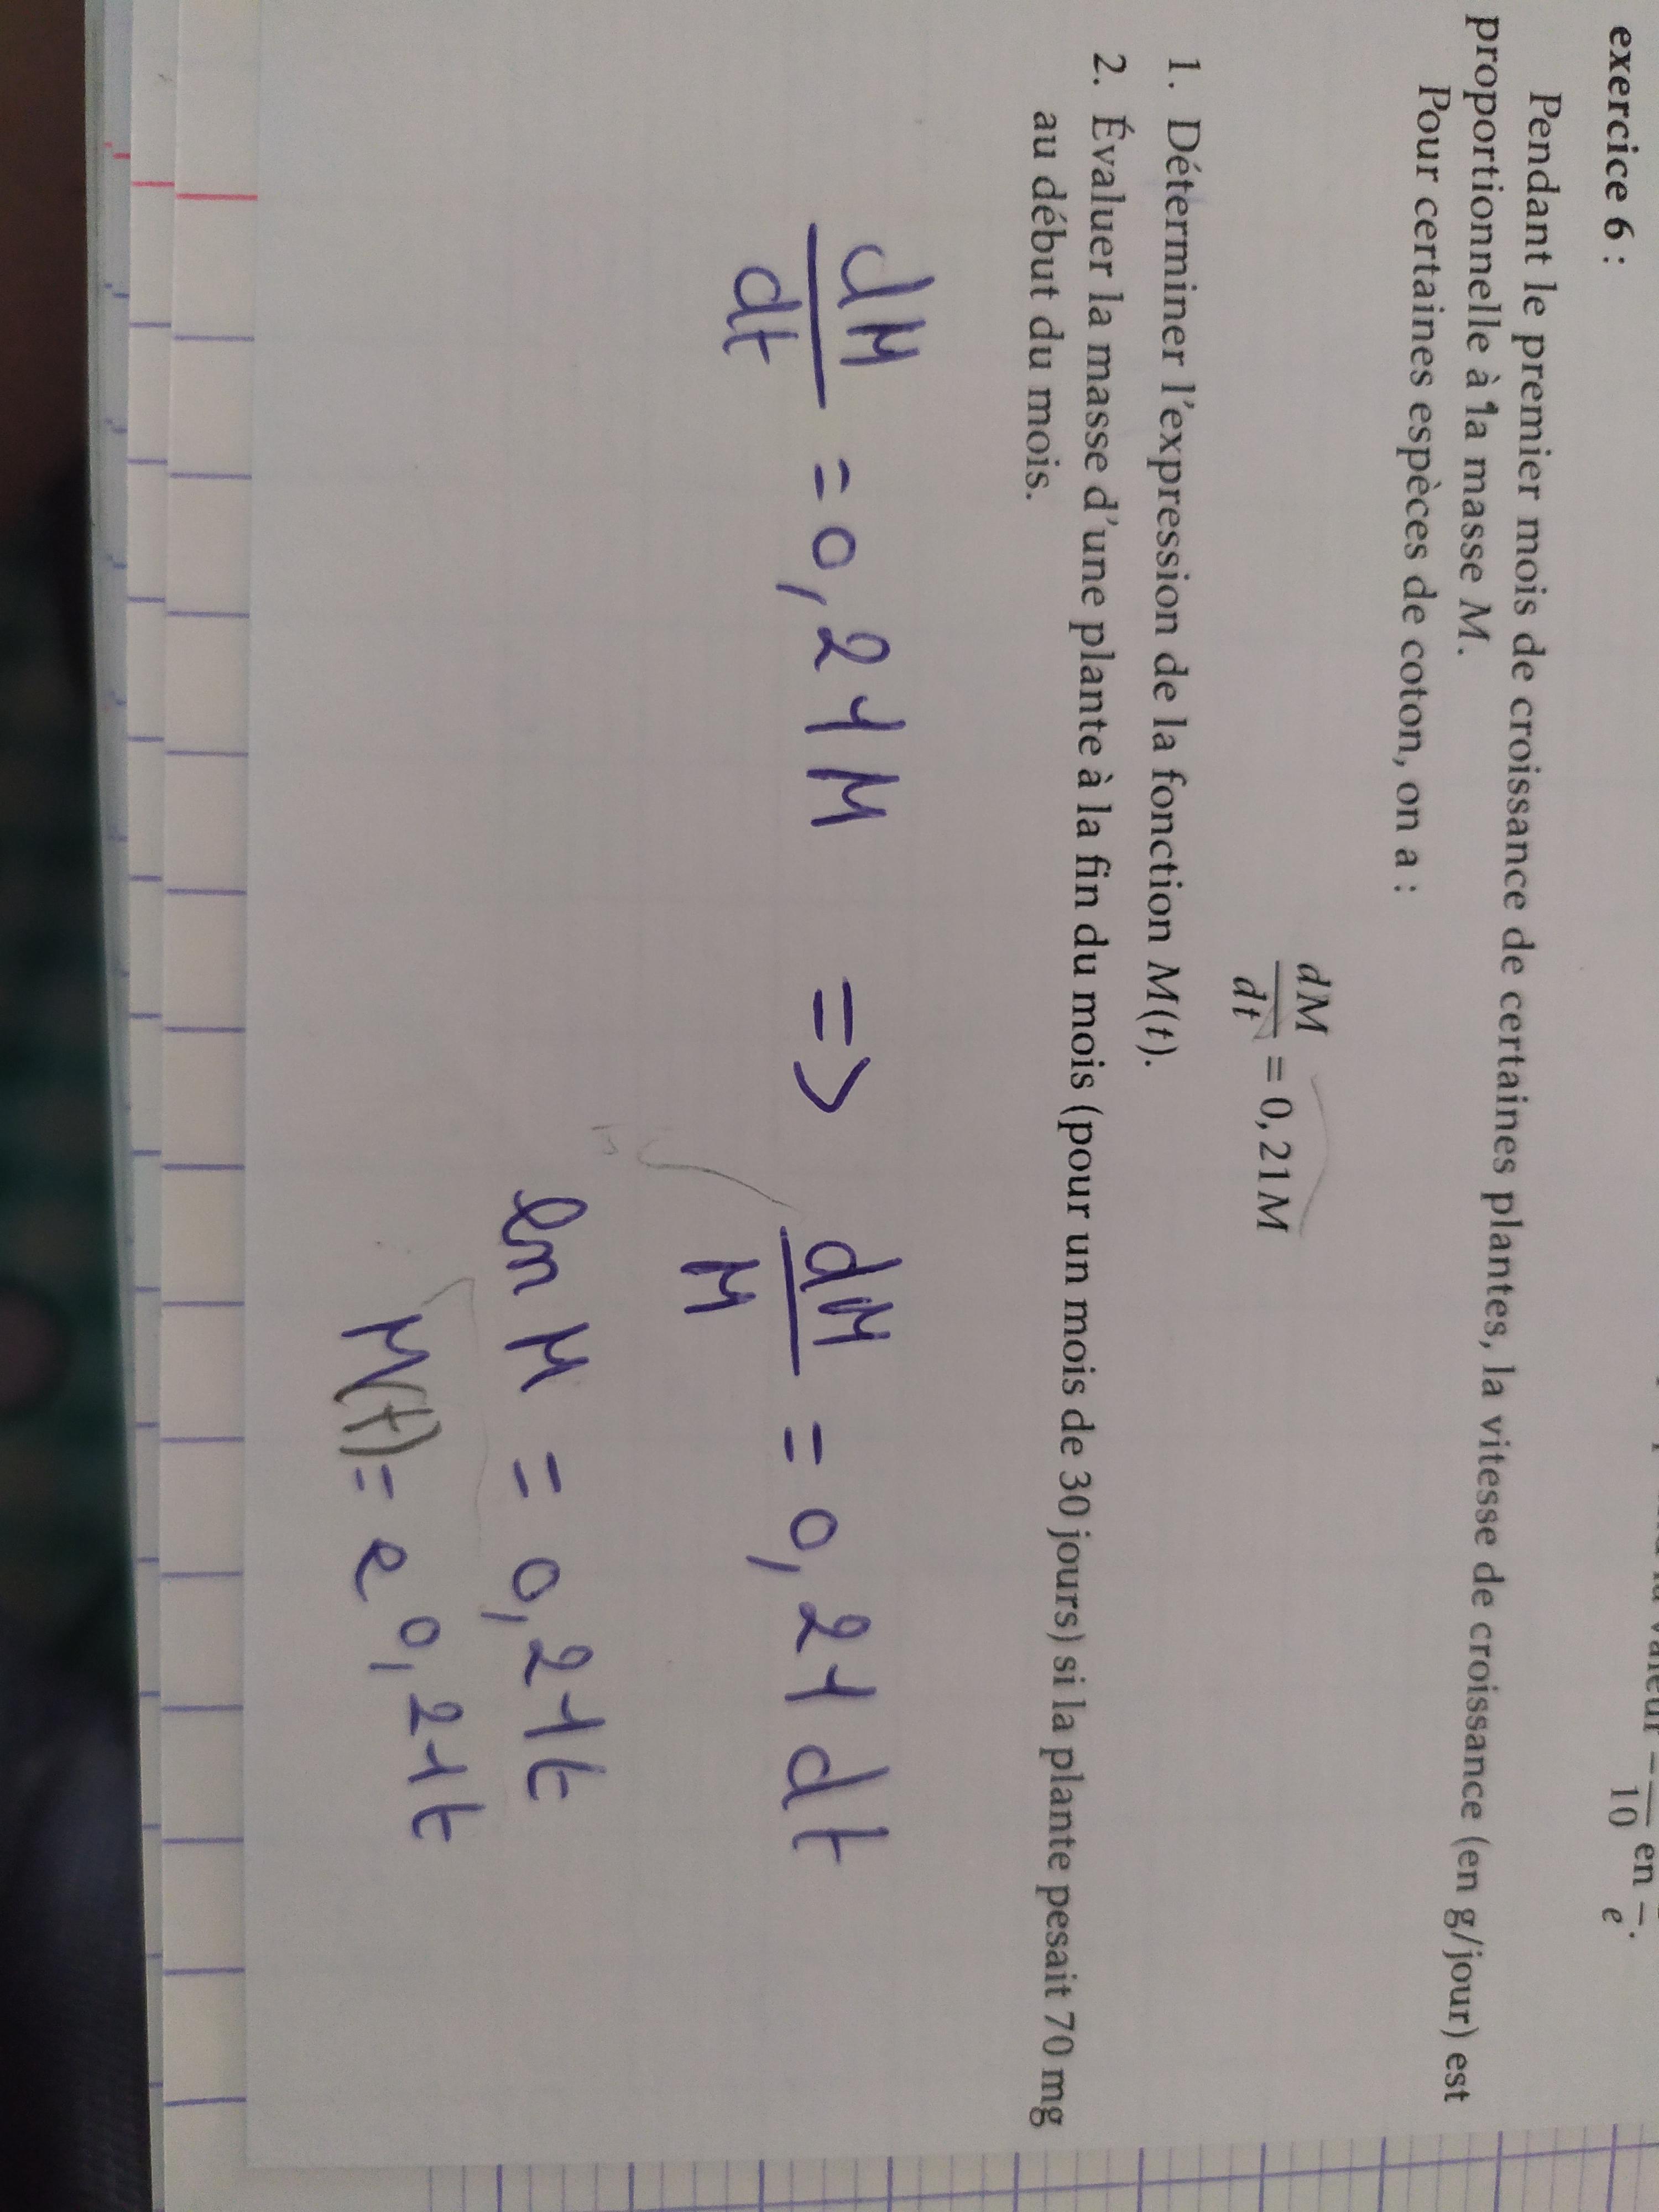 valeur — 10 en — e .
exercice 6 :
Pendant le premier mois de croissance de certaines plantes, la vitesse de croissance (en g/jour) est
proportionnelle à la masse M.
Pour certaines espèces de coton, on a :
dM/dt = 0,21M
1. Déterminer l'expression de la fonction M(t).
2. Évaluer la masse d'une plante à la fin du mois (pour un mois de 30 jours) si la plante pesait 70 mg
au début du mois.
dM/dt = 0,21M => dM/M = 0,21dt
ln M = 0,21t
M(t) = e^0,21t